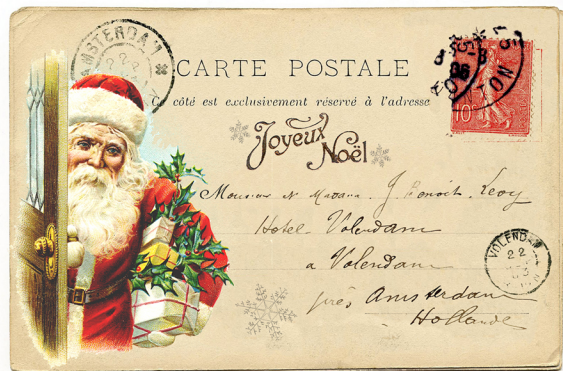 AMSTERDAM
22
CARTE POSTALE
Ce côté est exclusivement réservé à l'adresse
10
Joyeux
Noël
Monsieur et Madame J. Benoit-Levy
Hotel Volendam
a Volendam
près Amsterdam
Hollande
VOLENDAM
22